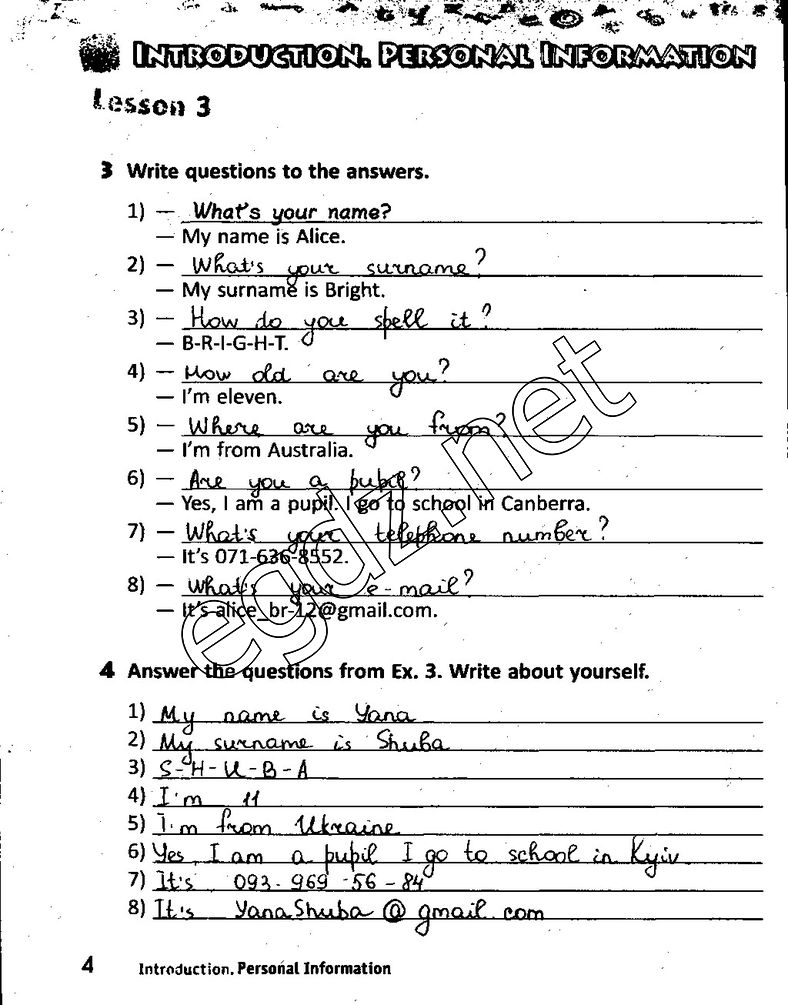 INTRODUCTION. PERSONAL INFORMATION
Lesson 3
3 Write questions to the answers.
1) — What's your name?
— My name is Alice.
2) — What's your surname?
— My surname is Bright.
3) — How do you spell it?
— B-R-I-G-H-T.
4) — How old are you?
— I'm eleven.
5) — Where are you from?
— I'm from Australia.
6) — Are you a pupil?
— Yes, I am a pupil. I go to school in Canberra.
7) — What's your telephone number?
— It's 071-636-8552.
8) — What's your e-mail?
— It's alice_br-12@gmail.com.
egdz.net
4 Answer the questions from Ex. 3. Write about yourself.
1) My name is Yana
2) My surname is Shuba
3) S-H-U-B-A
4) I'm 11
5) I'm from Ukraine
6) Yes, I am a pupil I go to school in Kyiv.
7) It's 093-969-56-84
8) It's YanaShuba@gmail.com
4 Introduction. Personal Information